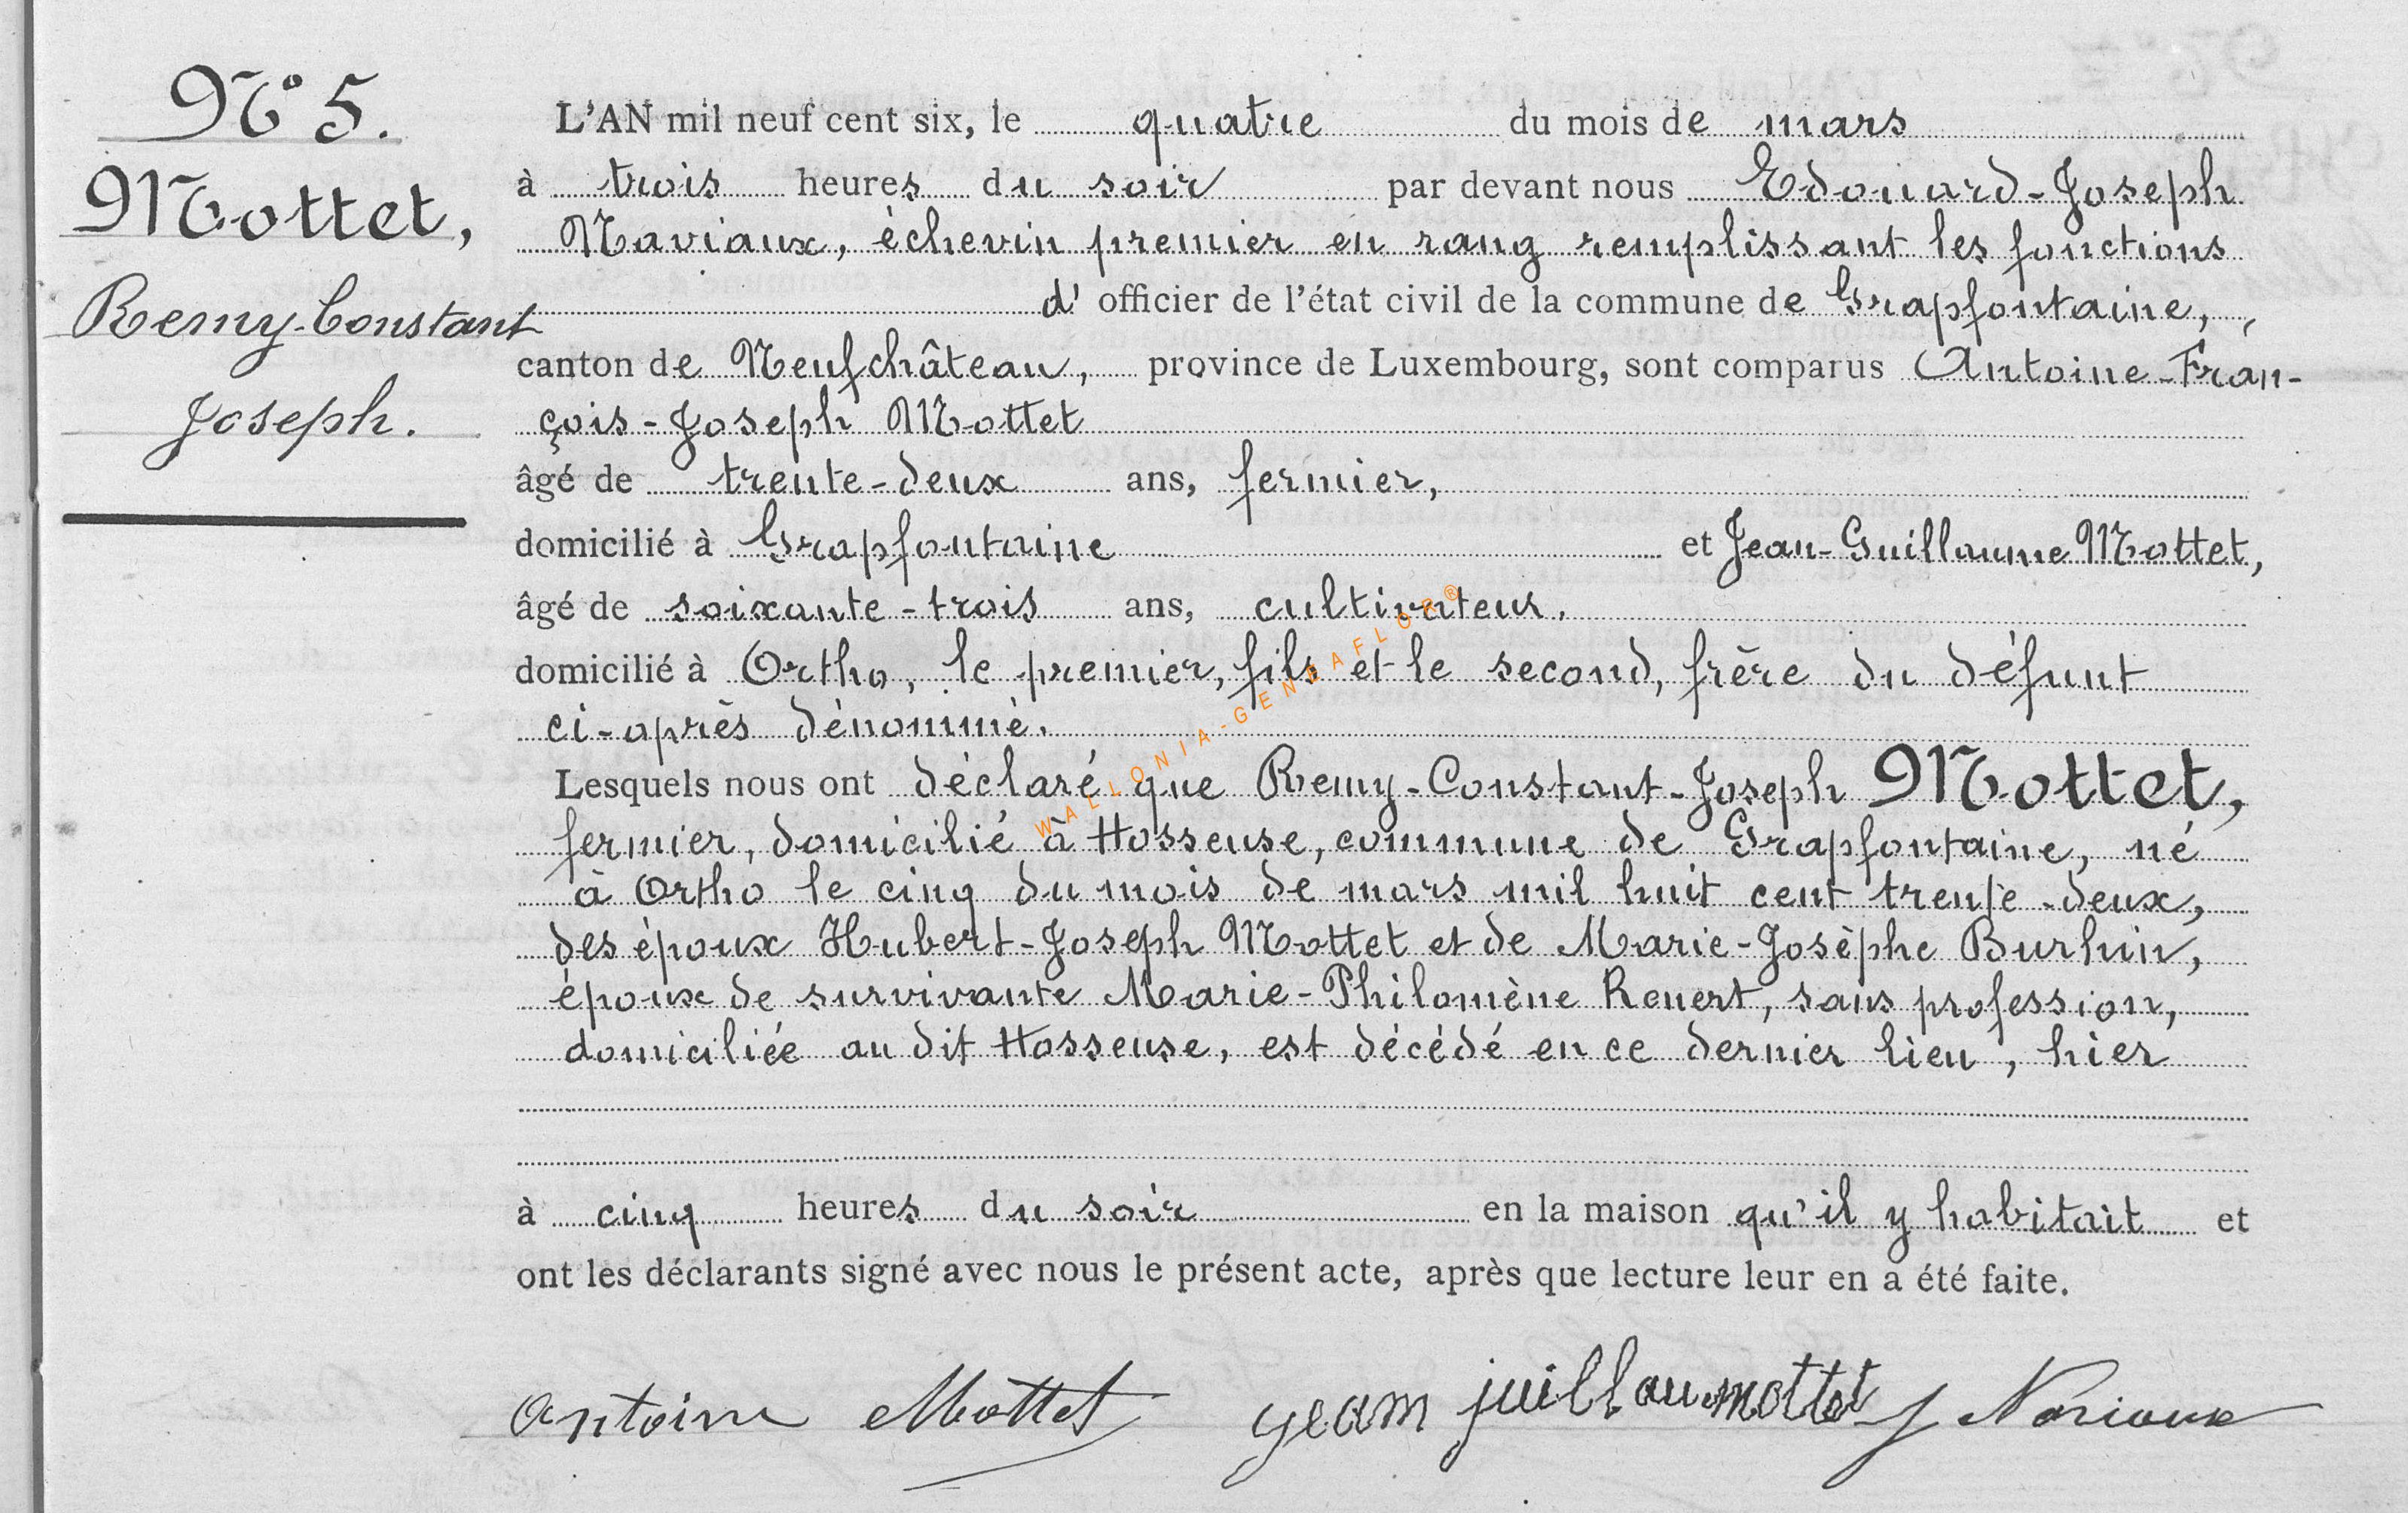 N° 5.
Mottet,
Remy-Constant
Joseph.
L'AN mil neuf cent six, le quatre du mois de mars
à trois heures du soir par devant nous Edouard-Joseph
Naviaux, échevin premier en rang remplissant les fonctions
d' officier de l'état civil de la commune de Grapfontaine,
canton de Neufchâteau, province de Luxembourg, sont comparus Antoine-Fran-
çois-Joseph Mottet
âgé de trente-deux ans, fermier,
domicilié à Grapfontaine et Jean-Guillaume Mottet,
âgé de soixante-trois ans, cultivateur,
domicilié à Ortho, le premier, fils et le second, frère du défunt
ci-après dénommé.
Lesquels nous ont déclaré que Remy-Constant-Joseph Mottet,
fermier, domicilié à Hosseuse, commune de Grapfontaine, né
à Ortho le cinq du mois de mars mil huit cent trente-deux,
des époux Hubert-Joseph Mottet et de Marie-Josèphe Burhin,
époux de survivante Marie-Philomène Renert, sans profession,
domiciliée au dit Hosseuse, est décédé en ce dernier lieu, hier
à cinq heures du soir en la maison qu'il y habitait et
ont les déclarants signé avec nous le présent acte, après que lecture leur en a été faite.
Antoine Mottet jeam juillaumottet J Naviaux
WALLONIA-GENEAFLOR®